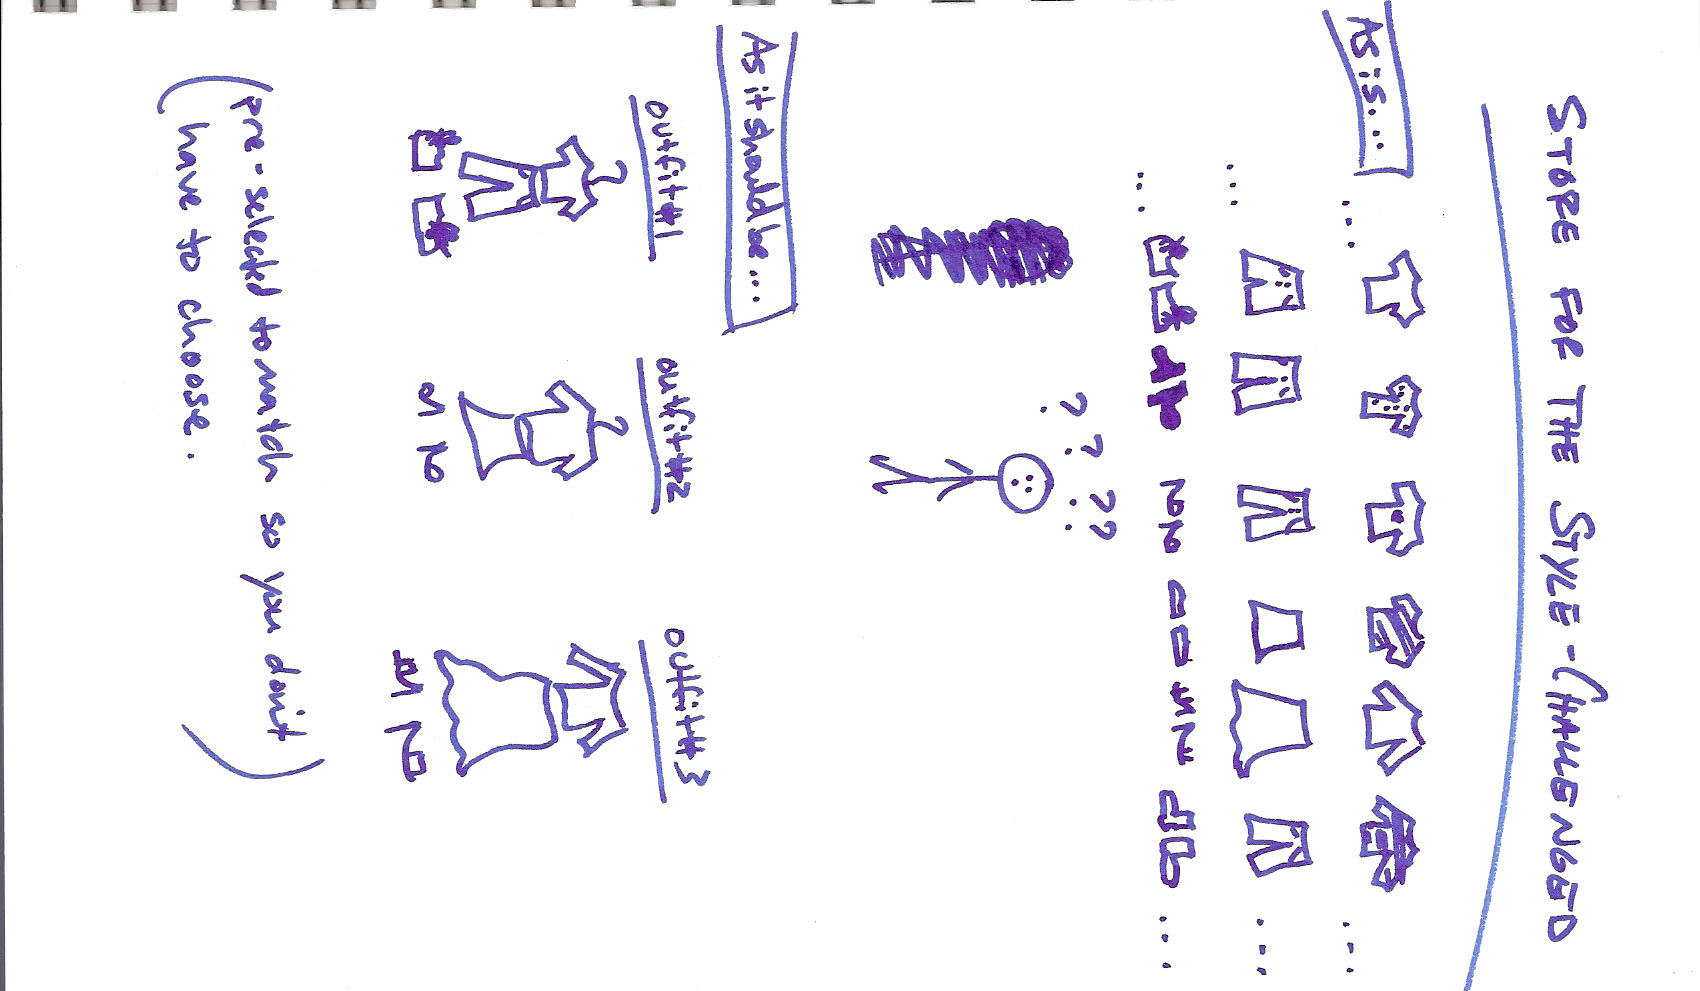 STORE FOR THE STYLE-CHALLENGED
As is....
? ? ? ?
As it should be....
outfit #1
outfit #2
outfit #3
(pre-selected to match so you don't
have to choose.)